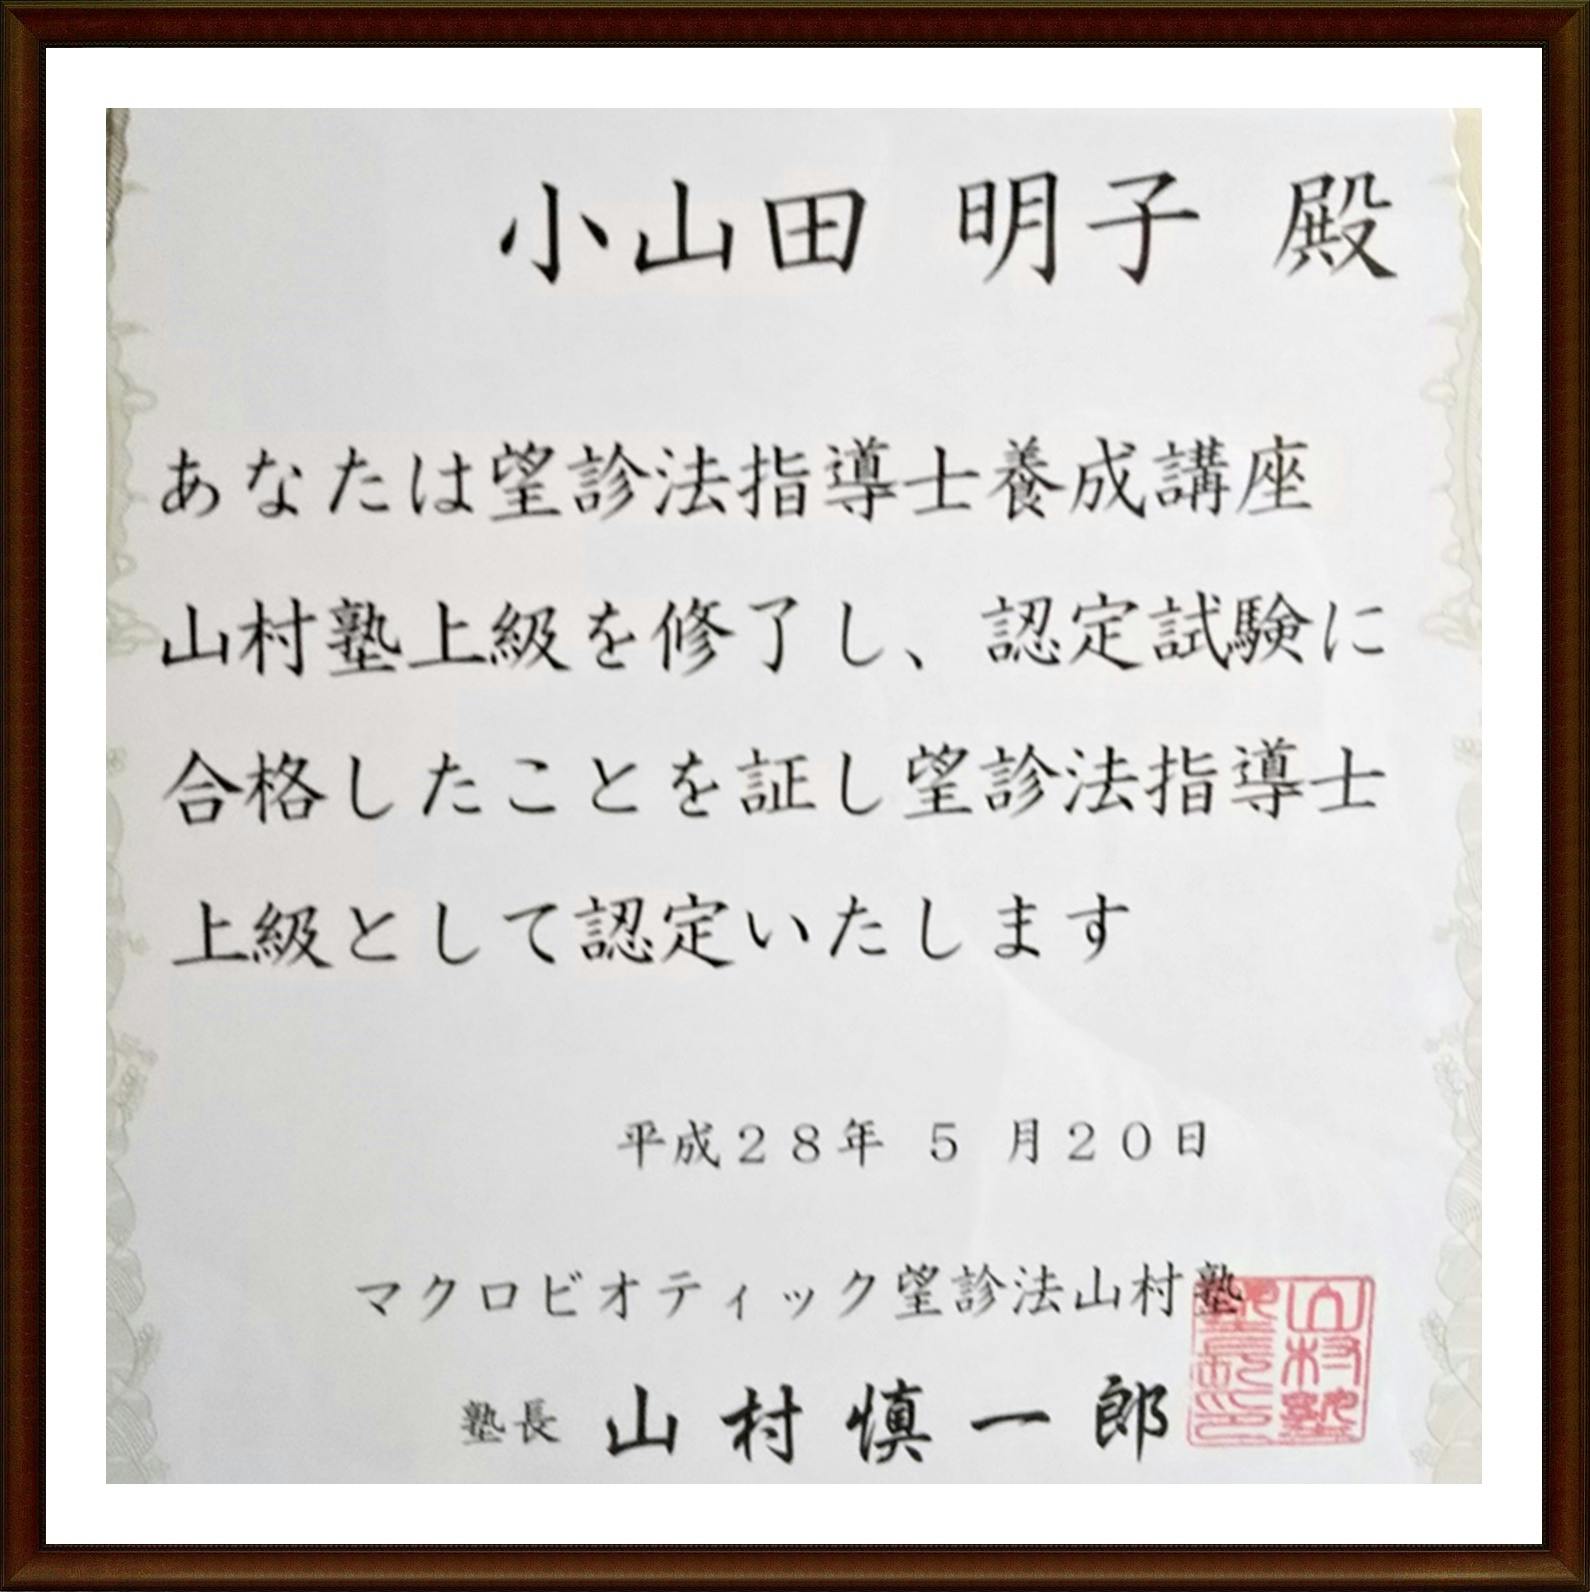 小山田 明子 殿
あなたは望診法指導士養成講座
山村塾上級を修了し、認定試験に
合格したことを証し望診法指導士
上級として認定いたします
平成28年 5 月20日
マクロビオティック望診法山村塾
塾長 山村慎一郎
山村塾
塾長印